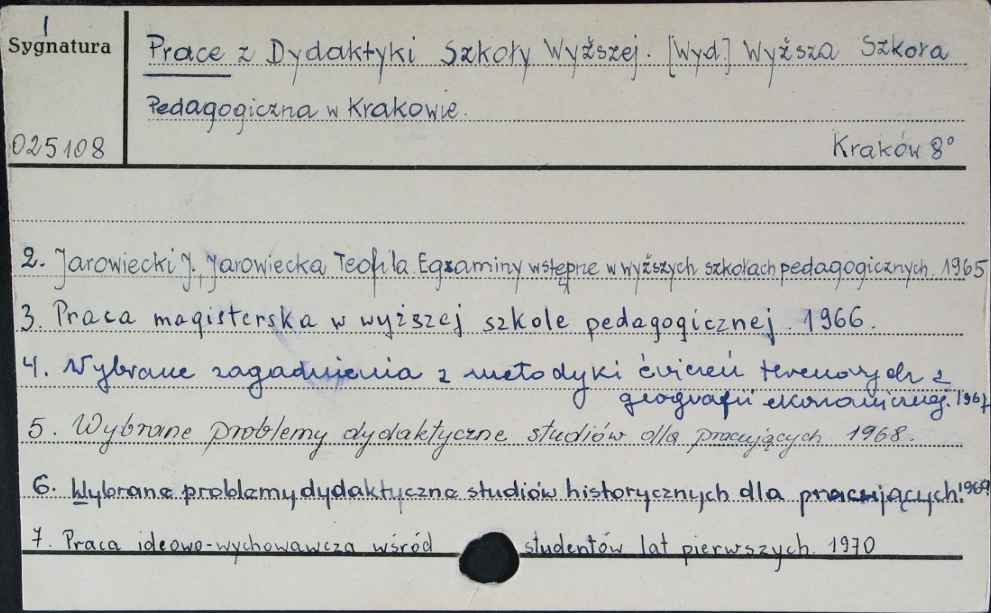 1
Sygnatura
Prace z Dydaktyki Szkoły Wyższej. [Wyd.] Wyższa Szkoła
Pedagogiczna w Krakowie.
025108
Kraków 8°
2. Jarowiecki J., Jarowiecka Teofila. Egzaminy wstępne w wyższych szkołach pedagogicznych. 1965
3. Praca magisterska w wyższej szkole pedagogicznej. 1966.
4. Wybrane zagadnienia z metodyki ćwiczeń terenowych z
geografii ekonomicznej. 1967
5. Wybrane problemy dydaktyczne studiów dla pracujących 1968.
6. Wybrane problemy dydaktyczne studiów historycznych dla pracujących. 1969
7. Praca ideowo-wychowawcza wśród studentów lat pierwszych. 1970